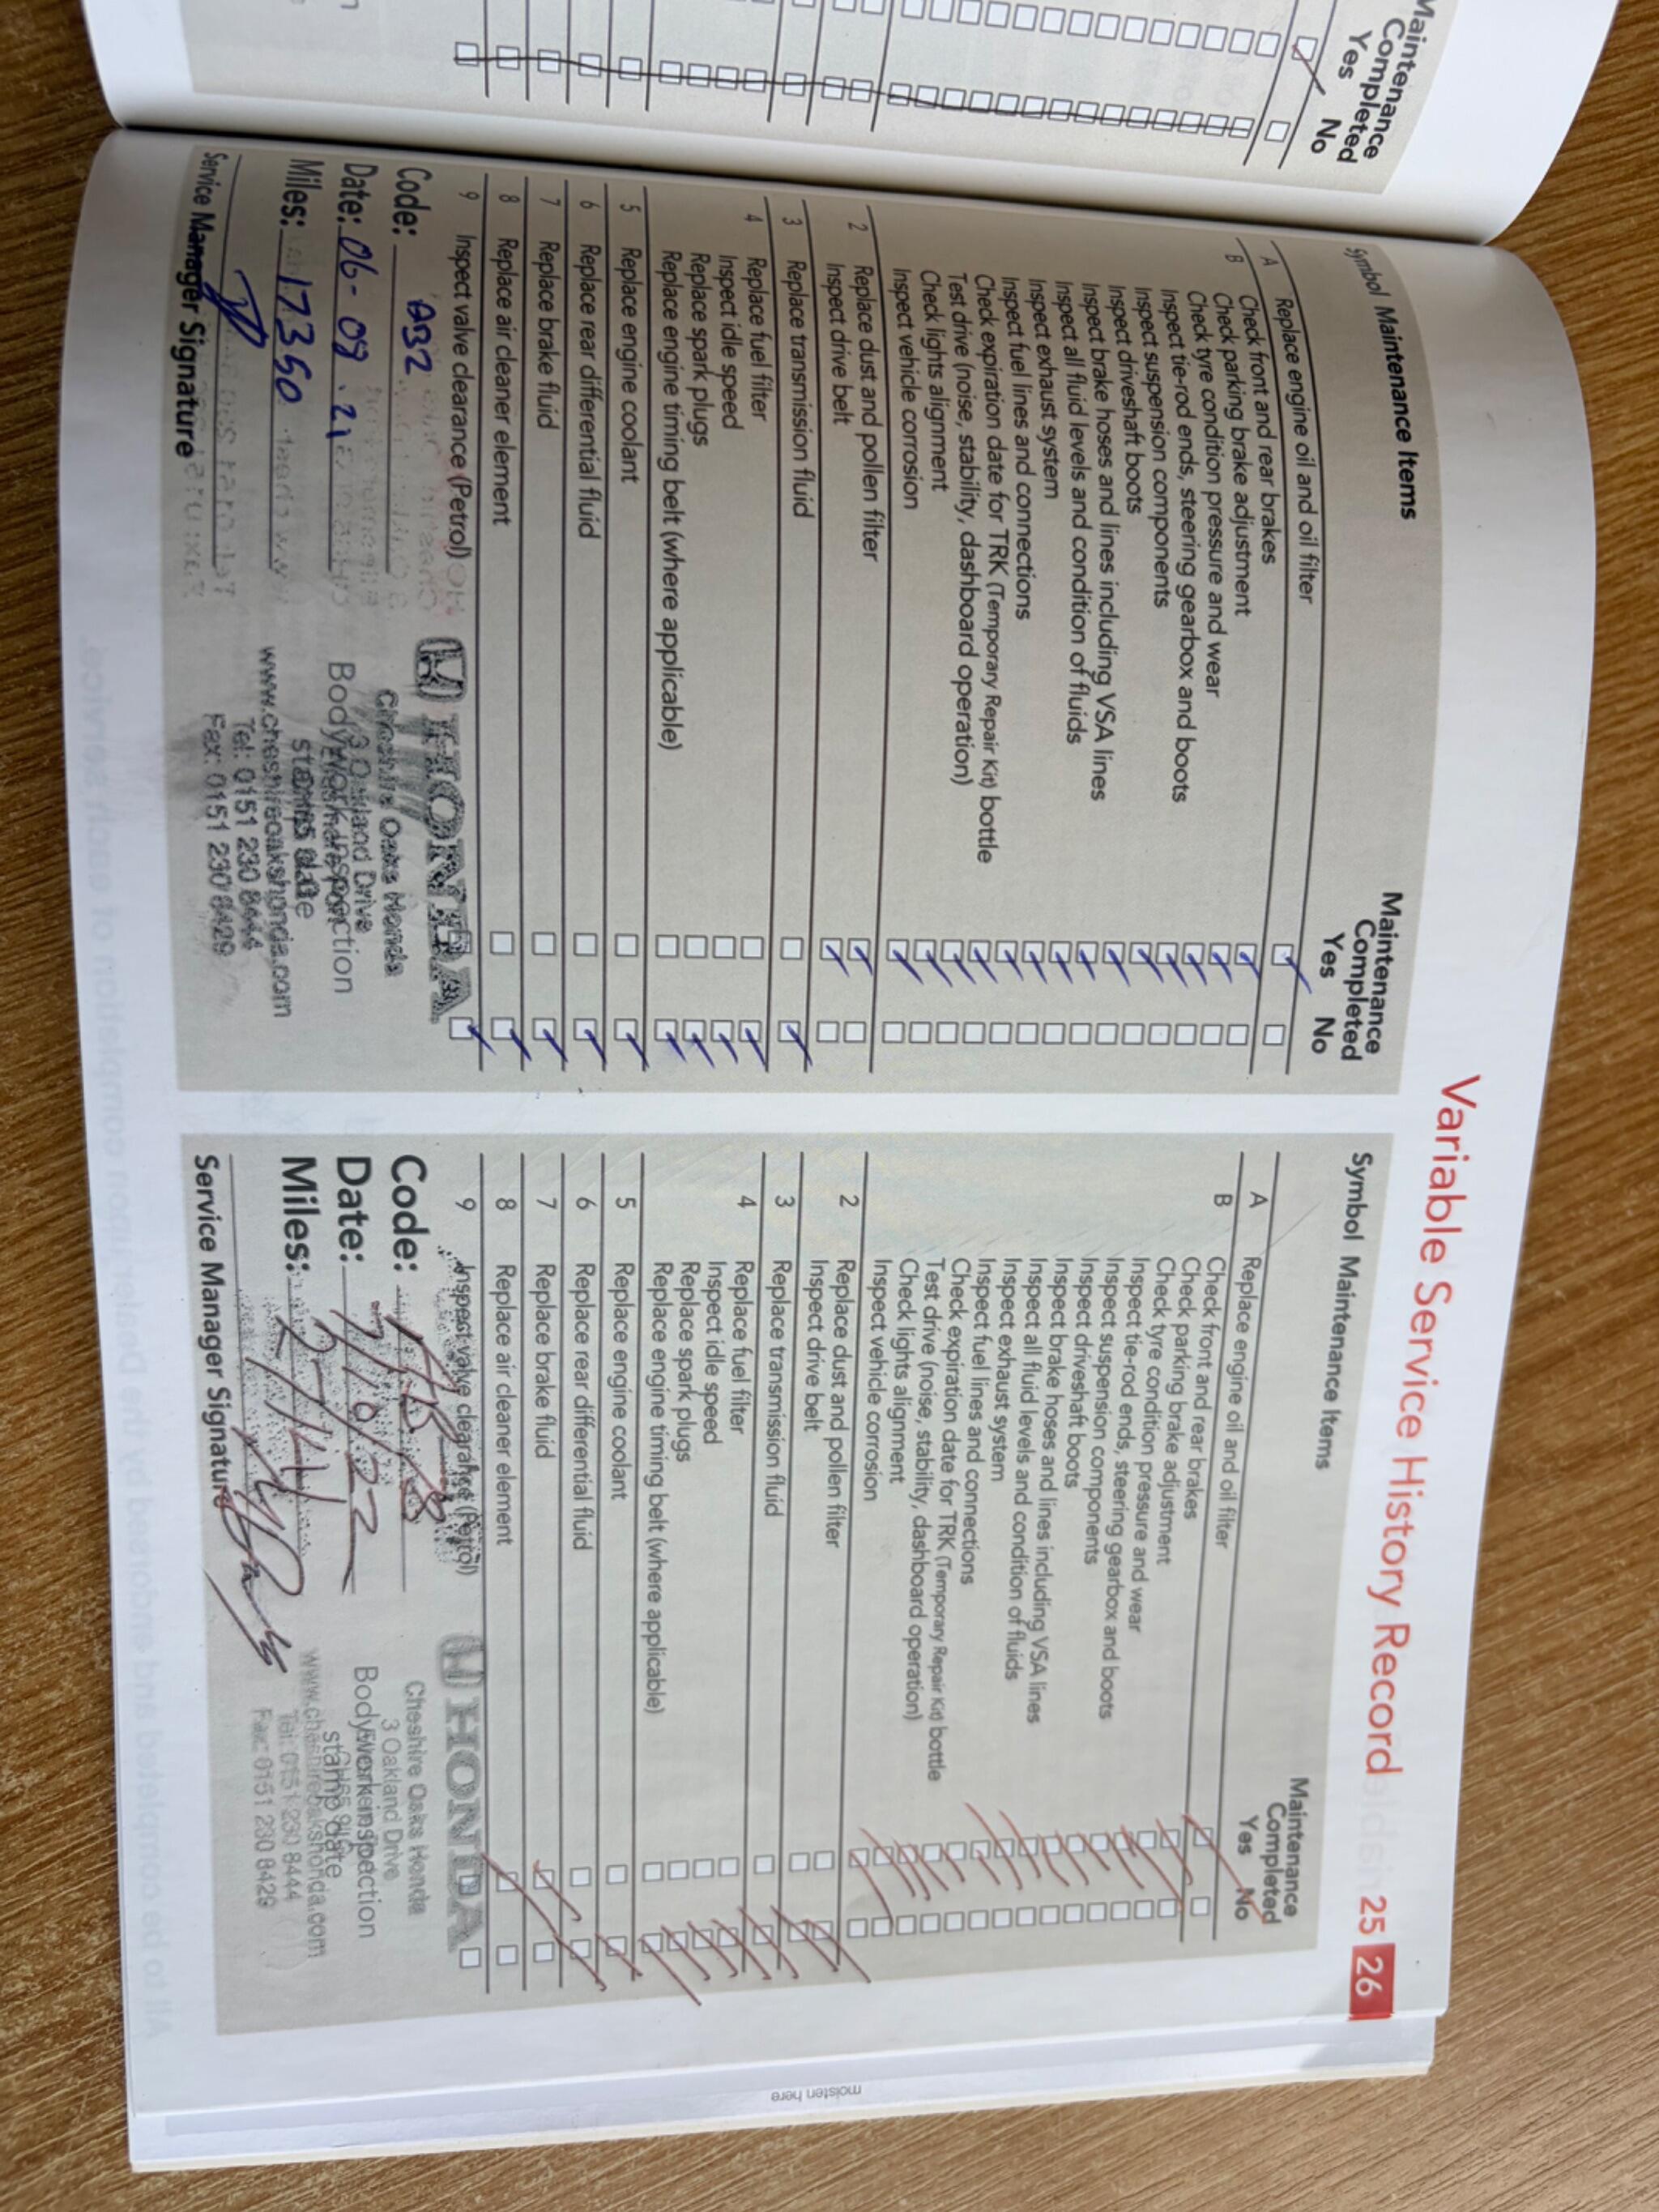 Maintenance
Completed
Yes No
Variable Service History Record 25 26
Symbol Maintenance Items
Maintenance
Completed
Yes No
A Replace engine oil and oil filter
B Check front and rear brakes
Check parking brake adjustment
Check tyre condition pressure and wear
Inspect tie-rod ends, steering gearbox and boots
Inspect suspension components
Inspect driveshaft boots
Inspect brake hoses and lines including VSA lines
Inspect all fluid levels and condition of fluids
Inspect exhaust system
Inspect fuel lines and connections
Check expiration date for TRK (Temporary Repair Kit) bottle
Test drive (noise, stability, dashboard operation)
Check lights alignment
Inspect vehicle corrosion
2 Replace dust and pollen filter
Inspect drive belt
3 Replace transmission fluid
4 Replace fuel filter
Inspect idle speed
Replace spark plugs
Replace engine timing belt (where applicable)
5 Replace engine coolant
6 Replace rear differential fluid
7 Replace brake fluid
8 Replace air cleaner element
9 Inspect valve clearance (Petrol)
Code:
Date: 06-09.21
Miles: 17350
Service Manager Signature
HONDA
Cheshire Oaks Honda
3 Oakland Drive
Bodywork inspection
stamp date
www.cheshireoakshonda.com
Tel: 0151 230 8444
Fax: 0151 230 8429
Symbol Maintenance Items
Maintenance
Completed
Yes No
A Replace engine oil and oil filter
B Check front and rear brakes
Check parking brake adjustment
Check tyre condition pressure and wear
Inspect tie-rod ends, steering gearbox and boots
Inspect suspension components
Inspect driveshaft boots
Inspect brake hoses and lines including VSA lines
Inspect all fluid levels and condition of fluids
Inspect exhaust system
Inspect fuel lines and connections
Check expiration date for TRK (Temporary Repair Kit) bottle
Test drive (noise, stability, dashboard operation)
Check lights alignment
Inspect vehicle corrosion
2 Replace dust and pollen filter
Inspect drive belt
3 Replace transmission fluid
4 Replace fuel filter
Inspect idle speed
Replace spark plugs
Replace engine timing belt (where applicable)
5 Replace engine coolant
6 Replace rear differential fluid
7 Replace brake fluid
8 Replace air cleaner element
9 Inspect valve clearance (Petrol)
Code:
Date: 7/10/22
Miles:
Service Manager Signature
HONDA
Cheshire Oaks Honda
3 Oakland Drive
Bodywork inspection
stamp date
www.cheshireoakshonda.com
Tel: 0151 230 8444
Fax: 0151 230 8429
moisten here